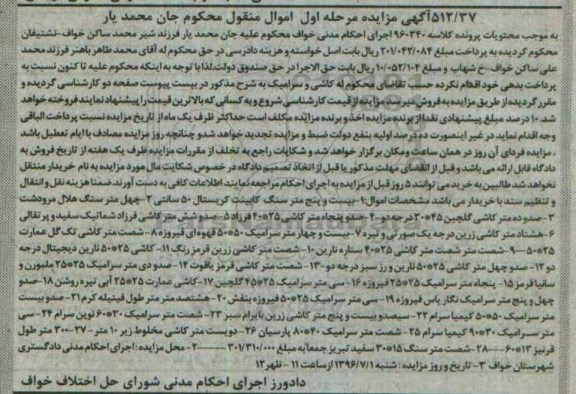 ۵۱۲/۳۷آگهی مزایده مرحله اول اموال منقول محکوم جان محمد یار
به موجب محتویات پرونده کلاسه ۹۶۰۳۴۰اجرای احکام مدنی خواف محکوم علیه جان محمد یار فرزند شیر محمد ساکن خواف-نشتیفان
محکوم گردیده به پرداخت مبلغ ۲۰۱/۰۴۲/۰۸۴ ریال بابت اصل خواسته و هزینه دادرسی در حق محکوم له آقای محمد طاهر باهنر فرزند محمد
علی ساکن خواف -خ شهاب و مبلغ ۱۰/۰۵۲/۱۰۴ ریال بابت حق الاجرا در حق صندوق دولت.لذا با توجه به اینکه محکوم علیه تا کنون نسبت به
پرداخت بدهی خود اقدام نکرده حسب تقاضای محکوم له کاشی و سرامیک به شرح مذکور در بیست پیوست صفحه دو کارشناسی گردیده و
مقرر گردیده از طریق مزایده به فروش برسد.مزایده از قیمت کارشناسی شروع و به کسانی که بالاترین قیمت را پیشنهاد نمایند فروخته خواهد
شد ۱۰ درصد مبلغ پیشنهادی نقدا از برنده مزایده اخذ و برنده مزایده مکلف است حداکثر ظرف یک ماه از تاریخ مزایده نسبت پرداخت الباقی
وجه اقدام نماید در غیر اینصورت ده درصد اولیه بنفع دولت ضبط و مزایده تجدید خواهد شدو چنانچه روز مزایده مصادف با ایام تعطیل باشد
، مزایده فردای آن روز در همان ساعت و مکان برگزار خواهد شد و شکایات راجع به تخلف از مقررات مزایده ظرف یک هفته از تاریخ فروش به
دادگاه قابل ارائه می باشد و قبل از انقضای مهلت مذکور یا قبل از اتخاذ تصمیم دادگاه در خصوص شکایت مال مورد مزایده به نام خریدار منتقل
نخواهد شد طالبین به خرید می توانند ۵ روز قبل از مزایده به اجرای احکام مراجعه نمایند اطلاعات کافی به دست آورند.ضمنا هزینه نقل و انتقال
و تنظیم سند با خریدار می باشد مشخصات اموال:۱-بیست و پنج متر سنگ کابینت کریستال ۵۰ سانتی ۲-چهل متر سنگ هلال مرودشت
۳-صدو ده متر کاشی گلچین ۴۵*۳۰ درجه دو ۴-صدو پنجاه متر کاشی ۲۵*۴۰ فرزاد ۵-صدو شش متر کاشی فرزاد شماتیک سفید و پرتقالی
۶-هشتاد متر کاشی زرین درجه یک صورتی و تیره ۷-بیست و چهار متر سرامیک ۵۰*۵۰ قهوه ای فیروزه ۸-شصت متر کاشی تک گل عمارت
۲۵*۵۰ ۹-شصت متر شصت متر کاشی ۲۵*۴۰ ستاره نارین ۱۰-شصت متر کاشی زرین قرمز رنگ ۱۱-کاشی ۲۵*۵۰ نارین دیجیتال درجه
دو ۱۲-صدو چهل متر کاشی ۲۵*۵۰ نارین و رز سبز درجه دو ۱۳-شصت متر کاشی قرمز یاقوت ۱۴-صدو دی متر سرامیک ۲۵*۲۵ ملبورن و
سانیا قرمز ۱۵-پنجاه متر سرامیک ۲۵*۲۵ فیروزه ۱۶-سی متر سرامیک ۲۵*۴۵ گلچین ۱۷-کاشی عمارت ۲۵*۳۵ آبی تیره روشن ۱۸-صدو
چهل و پنج متر سرامیک نگار یاس فیروزه ۱۹-سی متر سرامیک ۲۵*۵۰ فیروزه بنفش ۲۰-هشتصد متر متر طول فیتیله کرم ۲۱-صدو بیست
متر سرامیک ۵۰*۵۰ کیمیا سرام ۲۲-سیصدو بیست و پنج متر کاشی زرین بایرام سبز ۲۳-شصت متر سرامیک ۳۰*۶۰ نوین سرام ۲۴-سی
متر سرامیک ۳۰*۹۰ کیمیا سرام ۲۵-شصت متر سرامیک ۴۰*۸۰ پارسیان ۲۶-دویست متر کاشی مخلوط زیر ۱۰ متر ۲۷-۳۰۰ متر طول
قرنیز ۱۳*۶۰ ۲۸-شصت متر سنگ ۱۵*۳۰ سفید تبریز جمعا به مبلغ ۳۰۱/۳۱۰/۰۰۰ ۲-محل مزایده : اجرای احکام مدنی دادگستری
شهرستان خواف ۳-تاریخ و روز مزایده : شنبه ۱۳۹۶/۷/۱ از ساعت ۱۱ - ظهر۱۲
دادورز اجرای احکام مدنی شورای حل اختلاف خواف